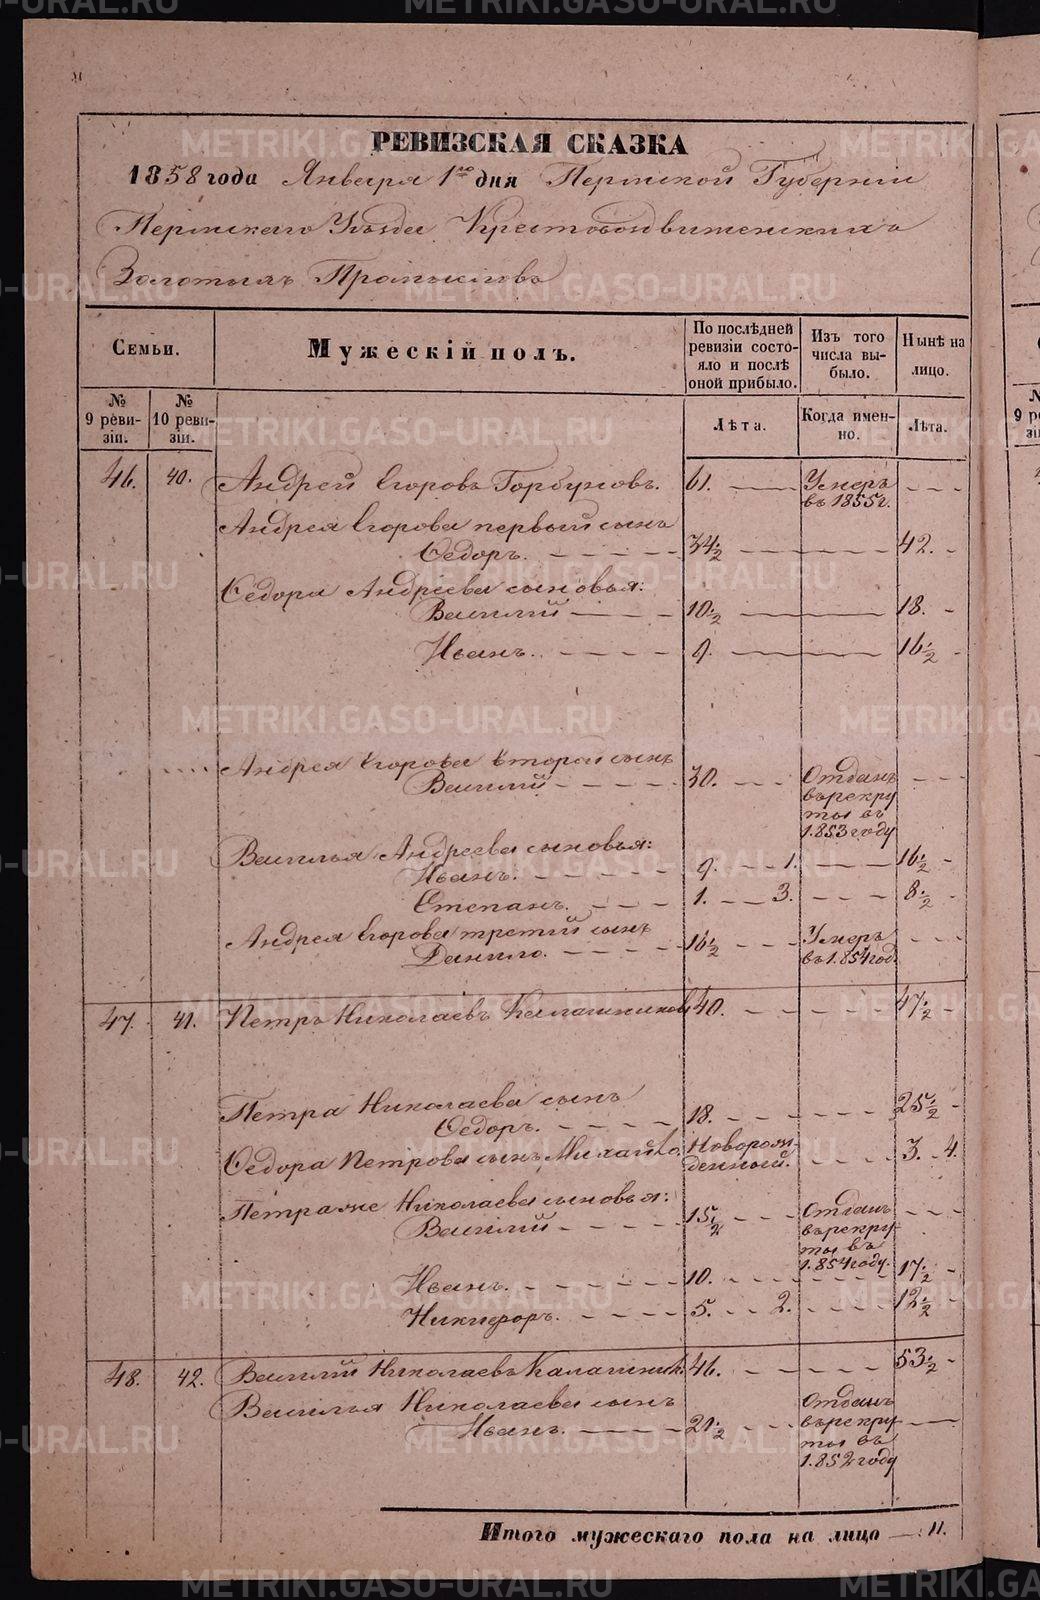 РЕВИЗСКАЯ СКАЗКА
1858 года Января 1го дня Пермской Губернии
Пермскаго Уѣзда Крестовоздвиженскихъ
Золотыхъ Промысловъ
Семьи.
Мужескій полъ.
По послѣдней ревизіи состояло и послѣ оной прибыло.
Изъ того числа выбыло.
Нынѣ на лицо.
№ 9 ревизіи.
№ 10 ревизіи.
Лѣта.
Когда именно.
Лѣта.
46. 40. Андрей Егоровъ Горбуновъ. 61. Умеръ въ 1855 г.
Андрея Егорова первый сынъ
Ѳедоръ. 34½ 42.
Ѳедора Андреева сыновья:
Василий 10½ 18.
Иванъ. 9. 16½
Андрея Егорова второй сынъ
Василий 30. Отданъ въ рекруты въ 1853 году
Василья Андреева сыновья:
Иванъ. 9. 1. 16½
Степанъ. 1. 3. 8½
Андрея Егорова третий сынъ
Данило. 16½ Умеръ въ 1854 год.
47. 41. Петръ Николаевъ Калашников 40. 47½
Петра Николаева сынъ
Ѳедоръ. 18. 25½
Ѳедора Петрова сынъ Михайло. Новорожденный. 3. 4.
Петра же Николаева сыновья:
Василий 15½ Отданъ въ рекруты въ 1854 году.
Иванъ. 10. 17½
Никифоръ. 5. 2. 12½
48. 42. Василий Николаевъ Калашник. 46. 53½
Василья Николаева сынъ
Иванъ. 21½ Отданъ въ рекруты въ 1852 году
Итого мужескаго пола на лицо 11.
METRIKI.GASO-URAL.RU